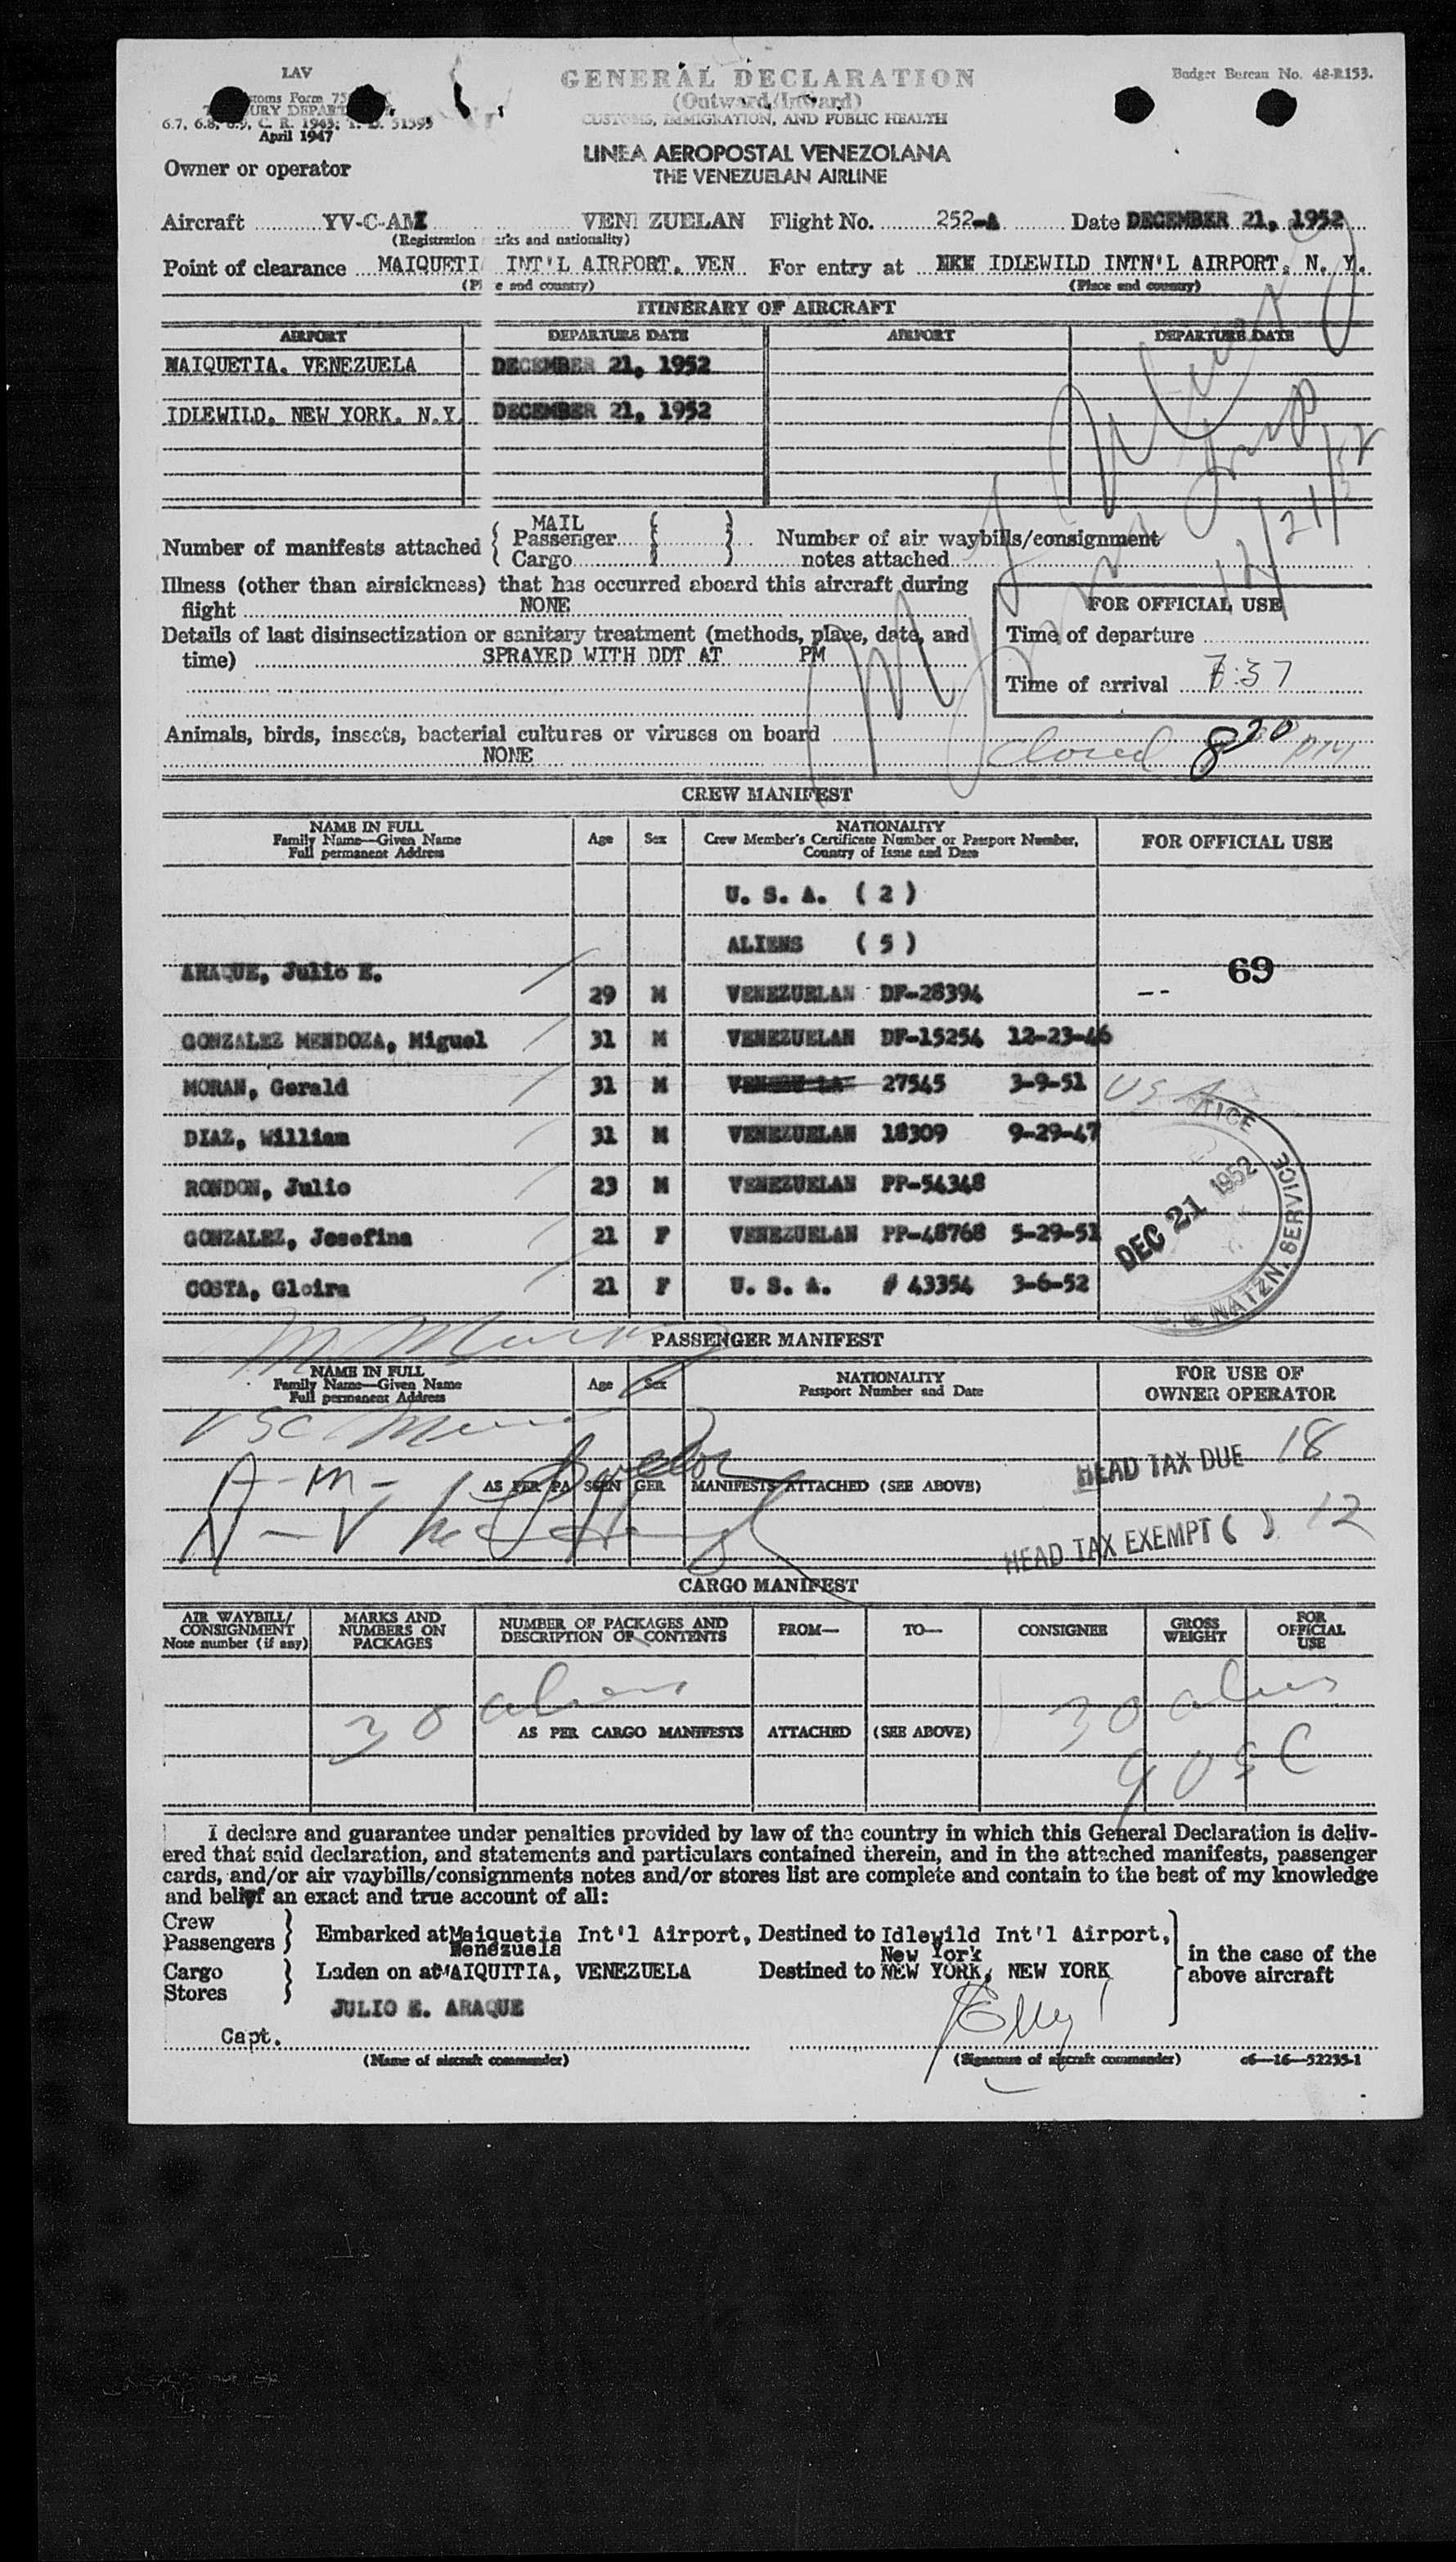 LAV
GENERAL DECLARATION
Budget Bureau No. 48-R153.
(Outward/Inward)
CUSTOMS, IMMIGRATION, AND PUBLIC HEALTH
6.7, 6.8, 6.9, C. R. 1943; T. D. 51595
April 1947
LINEA AEROPOSTAL VENEZOLANA
THE VENEZUELAN AIRLINE
Owner or operator
Aircraft YV-C-AMX VENEZUELAN Flight No. 252-A Date DECEMBER 21, 1952
(Registration marks and nationality)
Point of clearance MAIQUETI INT'L AIRPORT, VEN For entry at IDLEWILD INTN'L AIRPORT, N. Y.
(Place and country) (Place and country)
ITINERARY OF AIRCRAFT
AIRPORT DEPARTURE DATE AIRPORT DEPARTURE DATE
MAIQUETIA, VENEZUELA DECEMBER 21, 1952
IDLEWILD, NEW YORK, N.Y. DECEMBER 21, 1952
12/21/52
Number of manifests attached { MAIL Passenger Cargo } Number of air waybills/consignment notes attached
Illness (other than airsickness) that has occurred aboard this aircraft during
flight NONE
FOR OFFICIAL USE
Details of last disinsectization or sanitary treatment (methods, place, date, and
time) SPRAYED WITH DDT AT PM
Time of departure
Time of arrival 7:37
Animals, birds, insects, bacterial cultures or viruses on board
NONE
Closed 8 20 PM
CREW MANIFEST
NAME IN FULL
Family Name—Given Name
Full permanent Address
Age Sex
NATIONALITY
Crew Member's Certificate Number or Passport Number,
Country of Issue and Date
FOR OFFICIAL USE
U. S. A. ( 2 )
ALIENS ( 5 )
69
ARAQUE, Julio E. 29 M VENEZUELAN DF-28394 --
GONZALEZ MENDOZA, Miguel 31 M VENEZUELAN DF-15254 12-23-46
MORAN, Gerald 31 M 27545 3-9-51 USA
DIAZ, William 31 M VENEZUELAN 18309 9-29-47
RONDON, Julio 23 M VENEZUELAN PP-54348
GONZALEZ, Josefina 21 F VENEZUELAN PP-48768 5-29-51
COSTA, Gloira 21 F U. S. A. # 43354 3-6-52
DEC 21 1952
NATZN. SERVICE
PASSENGER MANIFEST
NAME IN FULL
Family Name—Given Name
Full permanent Address
Age Sex
NATIONALITY
Passport Number and Date
FOR USE OF
OWNER OPERATOR
HEAD TAX DUE 18
AS PER PASSENGER MANIFESTS ATTACHED (SEE ABOVE)
HEAD TAX EXEMPT ( ) 12
CARGO MANIFEST
AIR WAYBILL/
CONSIGNMENT
Note number (if any)
MARKS AND
NUMBERS ON
PACKAGES
NUMBER OF PACKAGES AND
DESCRIPTION OF CONTENTS
FROM— TO— CONSIGNEE
GROSS
WEIGHT
FOR
OFFICIAL
USE
30 aliens 30 aliens
AS PER CARGO MANIFESTS ATTACHED (SEE ABOVE)
9 USC
I declare and guarantee under penalties provided by law of the country in which this General Declaration is deliv-
ered that said declaration, and statements and particulars contained therein, and in the attached manifests, passenger
cards, and/or air waybills/consignments notes and/or stores list are complete and contain to the best of my knowledge
and belief an exact and true account of all:
Crew
Passengers } Embarked at Maiquetia Int'l Airport, Venezuela Destined to Idlewild Int'l Airport, New York
Cargo
Stores } Laden on at MAIQUITIA, VENEZUELA Destined to NEW YORK, NEW YORK
in the case of the
above aircraft
JULIO E. ARAQUE
Capt.
(Name of aircraft commander) (Signature of aircraft commander) c6—16—52235-1